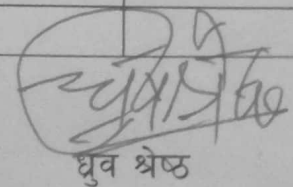 ध्रुव श्रेष्ठ